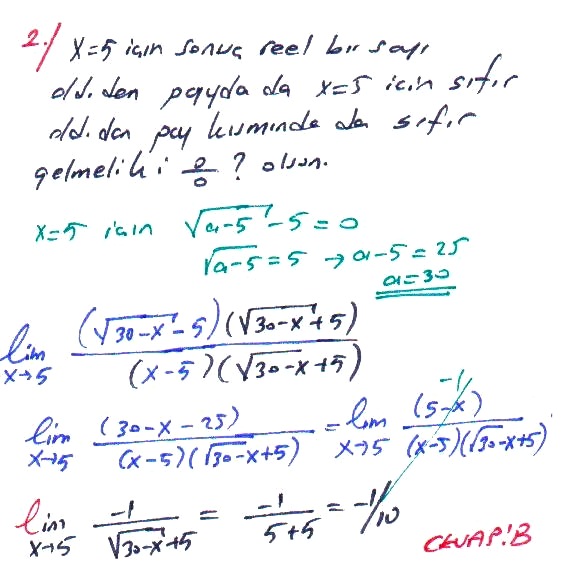 2./ X=5 için sonuç reel bir sayı
old. den payda da x=5 için sıfır
old. dan pay kısmında da sıfır
gelmeli ki 0/0 ? olsun.
x=5 için √(a-5) - 5 = 0
√(a-5) = 5 → a-5 = 25
a=30
lim x→5 (√(30-x) - 5)(√(30-x) + 5) / (x-5)(√(30-x) + 5)
lim x→5 (30-x-25) / (x-5)(√(30-x)+5) = lim x→5 (5-x) -1 / (x-5)(√(30-x)+5)
lim x→5 -1 / √(30-x)+5 = -1 / 5+5 = -1/10
CEVAP:B